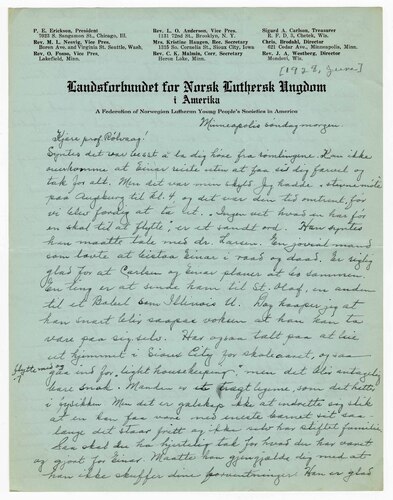 P. E. Erickson, President
7033 S. Sangamon St., Chicago, Ill.
Rev. M. L. Nesvig, Vice Pres.
Boren Ave. and Virginia St. Seattle, Wash.
Rev. O. Fosso, Vice Pres.
Lakefield, Minn.
Rev. L. O. Anderson, Vice Pres.
1131 72nd St., Brooklyn, N. Y.
Mrs. Kristine Haugen, Rec. Secretary
1315 So. Cornelia St., Sioux City, Iowa
Rev. C. K. Malmin, Cor. Secretary
Heron Lake, Minn.
Sigurd A. Carlson, Treasurer
R. F. D. 3, Chetek, Wis.
Chris. Brodahl, Director
621 Cedar Ave., Minneapolis, Minn.
Rev. J. A. Westberg, Director
Mondovi, Wis.
[1928, June]
Landsforbundet for Norsk Luthersk Ungdom
i Amerika
A Federation of Norwegian Lutheran Young People's Societies in America
Minneapolis søndag morgen.
Kjære prof. Rölvaag!
Syntes det var leit å la dig höre fra sönningene. Kan ikke
overkomme at Einar reiste uten at faa sei dig farvel og
tak for alt. Men det var min skyld. Jeg hadde stevnemöte
paa Augsburg til kl. 4, og det var den tid omtrent för
vi blev færdig at ta ut. "Ingen vet hvad en har för
en skal til at flytte," er et sandt ord. Han syntes
han maatte tale med dr. Larsen. En jovial mand
som lovte at bistaa Einar i raad og daad. Er rigtig
glad for at Carlsen og Einar planer at bo sammen.
En ting er at sende ham til St. Olaf, en anden
til et Babel som Illinois U. Dog haaper jeg at
han snart blir saapas voksen at han kan ta
vare paa sig selv. Har ogsaa tatt paa at leie
ut hjemmet i Sioux City for skoleaaret, og saa
flytte med og
gaa ind for "light housekeeping," men det blir endagelig
bare snak. Manden er et tragt legeme, som det hette
i fysikken. Men det er galskap ikke at indrette sig slik
at en kan faa være med eneste barnet sit saa
længe det staar frit og ikke selv har stiftet familie.
Saa skal du ha hjertelig tak for hvad du har været
og gjort for Einar. Maatte han gjengjælde dig med at
han ikke skuffer dine forventninger! Han er glad